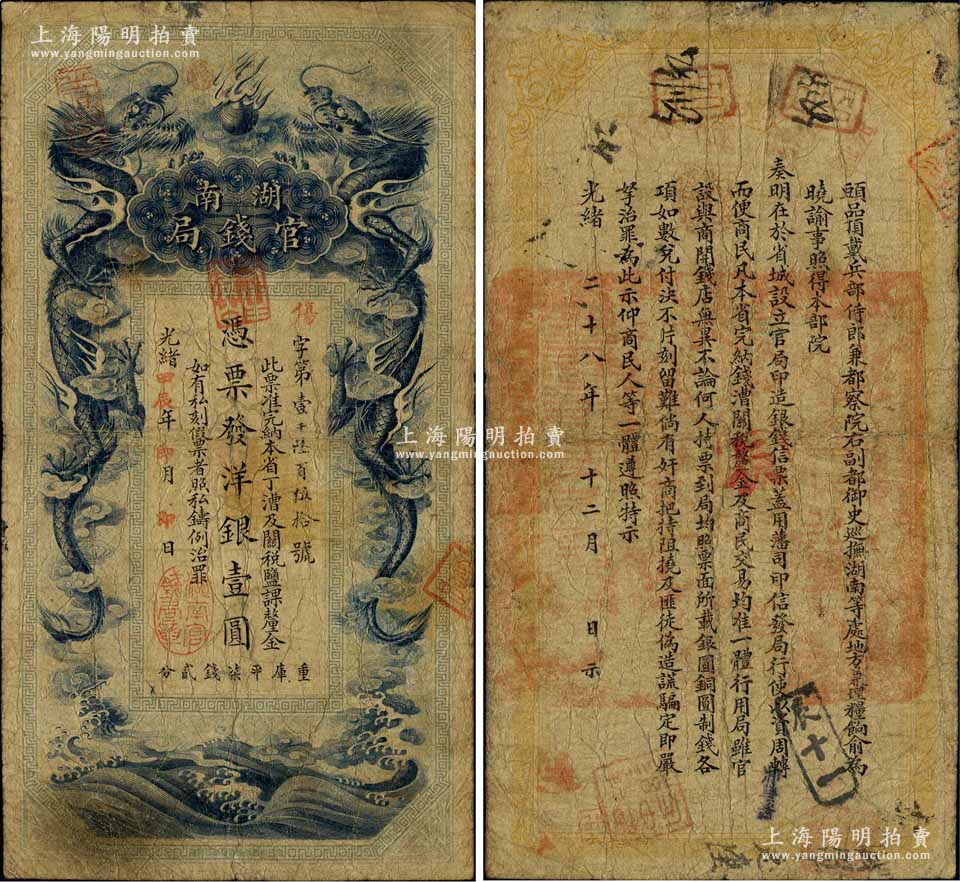 上海陽明拍賣
www.yangmingauction.com
湖南
官錢局
傷字第壹千陸百伍拾號
此票准完納本省丁漕及關稅鹽課釐金
憑票發洋銀壹圓
如有私刻假票者照私鑄例治罪
光緒甲辰年 月 日
重庫平柒錢貳分
上海陽明拍賣
www.yangmingauction.com
頭品頂戴兵部侍郎兼都察院右副都御史巡撫湖南等處地方兼理糧餉俞為
曉諭事照得本部院
奏明在於省城設立官局印造銀錢信票蓋用藩司印信發局行使以資周轉
而便商民凡本省完納錢漕關稅釐金及商民交易均准一體行用局雖官
設與商開錢店無異不論何人持票到局均照票面所載銀圓銅圓制錢各
項如數兌付決不片刻留難倘有奸商把持阻撓及匪徒偽造誆騙定即嚴
拏治罪為此示仰商民人等一體遵照特示
光緒二十八年十二月 日示
辰十一
上海陽明拍賣
www.yangmingauction.com